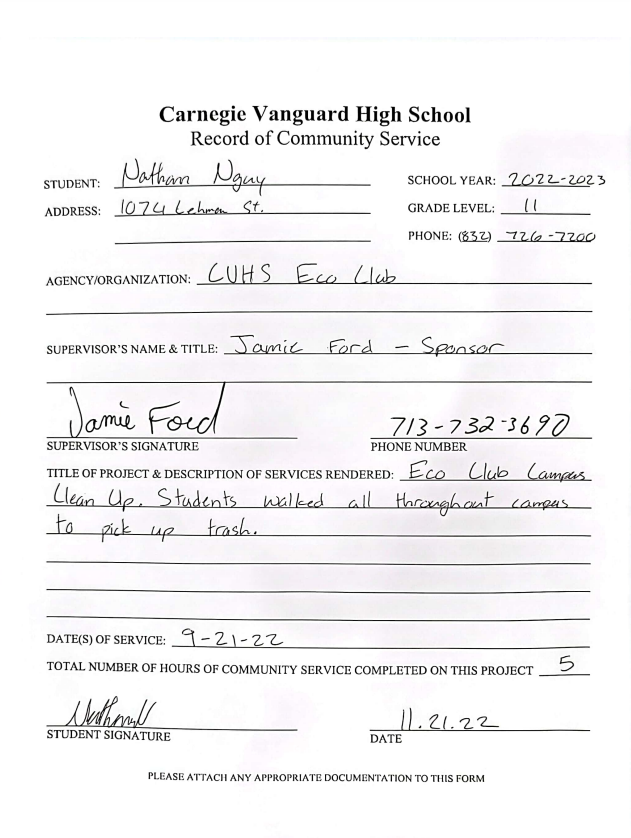 Carnegie Vanguard High School
Record of Community Service
STUDENT: Nathan Nguy SCHOOL YEAR: 2022-2023
ADDRESS: 1074 Lehman St. GRADE LEVEL: 11
PHONE: (832) 726-7200
AGENCY/ORGANIZATION: CVHS Eco Club
SUPERVISOR'S NAME & TITLE: Jamie Ford - Sponsor
Jamie Ford 713-732-3690
SUPERVISOR'S SIGNATURE PHONE NUMBER
TITLE OF PROJECT & DESCRIPTION OF SERVICES RENDERED: Eco Club Campus
Clean Up. Students walked all throughout campus
to pick up trash.
DATE(S) OF SERVICE: 9-21-22
TOTAL NUMBER OF HOURS OF COMMUNITY SERVICE COMPLETED ON THIS PROJECT 5
11.21.22
STUDENT SIGNATURE DATE
PLEASE ATTACH ANY APPROPRIATE DOCUMENTATION TO THIS FORM